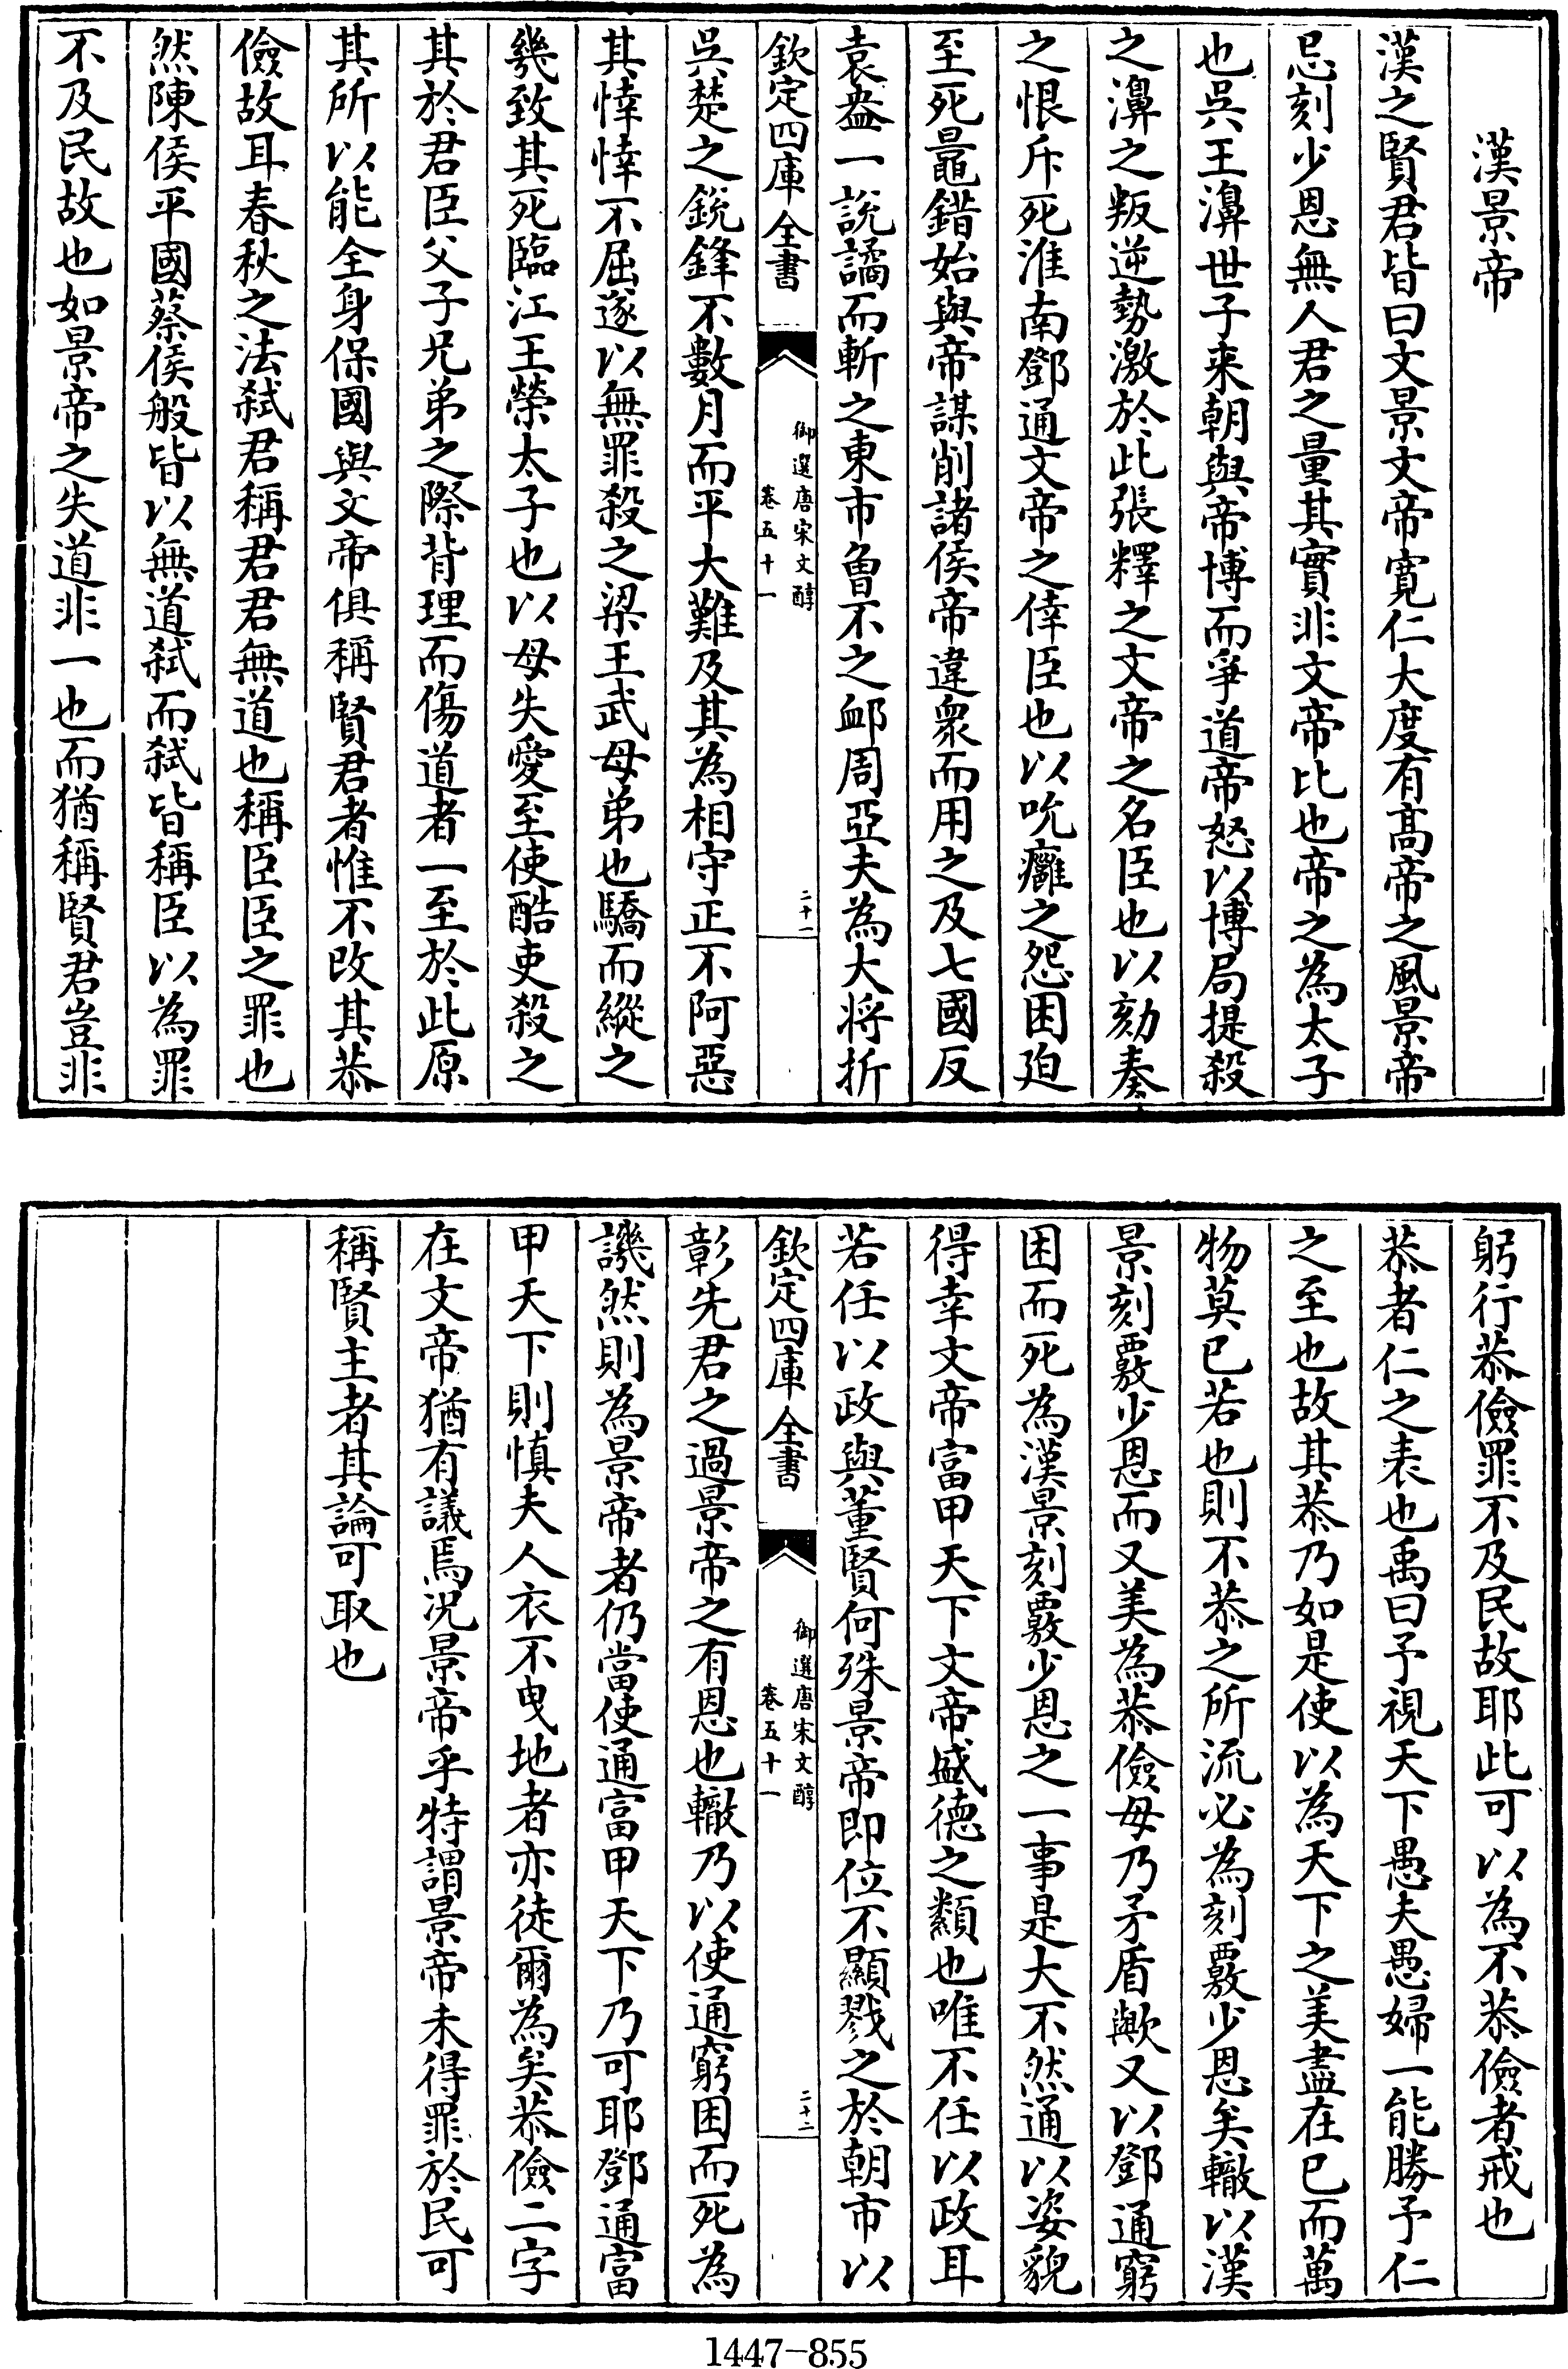 漢景帝
漢之賢君皆曰文景文帝寛仁大度有髙帝之風景帝
忌刻少恩無人君之量其實非文帝比也帝之為太子
也吳王濞世子来朝與帝博而爭道帝怒以博局提殺
之濞之叛逆勢激於此張釋之文帝之名臣也以劾奏
之恨斥死淮南鄧通文帝之倖臣也以吮癰之怨困迫
至死鼂錯始與帝謀削諸侯帝違衆而用之及七國反
袁盎一說譎而斬之東市曽不之卹周亞夫為大将折
欽定四庫全書
御選唐宋文醇
卷五十一
二十一
吳楚之銳鋒不數月而平大難及其為相守正不阿惡
其悻悻不屈遂以無罪殺之梁王武母弟也驕而縱之
幾致其死臨江王榮太子也以母失愛至使酷吏殺之
其於君臣父子兄弟之際背理而傷道者一至於此原
其所以能全身保國與文帝俱稱賢君者惟不改其恭
儉故耳春秋之法弑君稱君君無道也稱臣臣之罪也
然陳侯平國蔡侯般皆以無道弑而弑皆稱臣以為罪
不及民故也如景帝之失道非一也而猶稱賢君豈非
躬行恭儉罪不及民故耶此可以為不恭儉者戒也
恭者仁之表也禹曰予視天下愚夫愚婦一能勝予仁
之至也故其恭乃如是使以為天下之美盡在已而萬
物莫已若也則不恭之所流必為刻覈少恩矣轍以漢
景刻覈少恩而又美為恭儉毋乃矛盾歟又以鄧通窮
困而死為漢景刻覈少恩之一事是大不然通以姿貌
得幸文帝富甲天下文帝盛德之纇也唯不任以政耳
若任以政與董賢何殊景帝即位不顯戮之於朝市以
欽定四庫全書
御選唐宋文醇
卷五十一
二十二
彰先君之過景帝之有恩也轍乃以使通窮困而死為
譏然則為景帝者仍當使通富甲天下乃可耶鄧通富
甲天下則慎夫人衣不曳地者亦徒爾為矣恭儉二字
在文帝猶有議焉况景帝乎特謂景帝未得罪於民可
稱賢主者其論可取也
1447-855